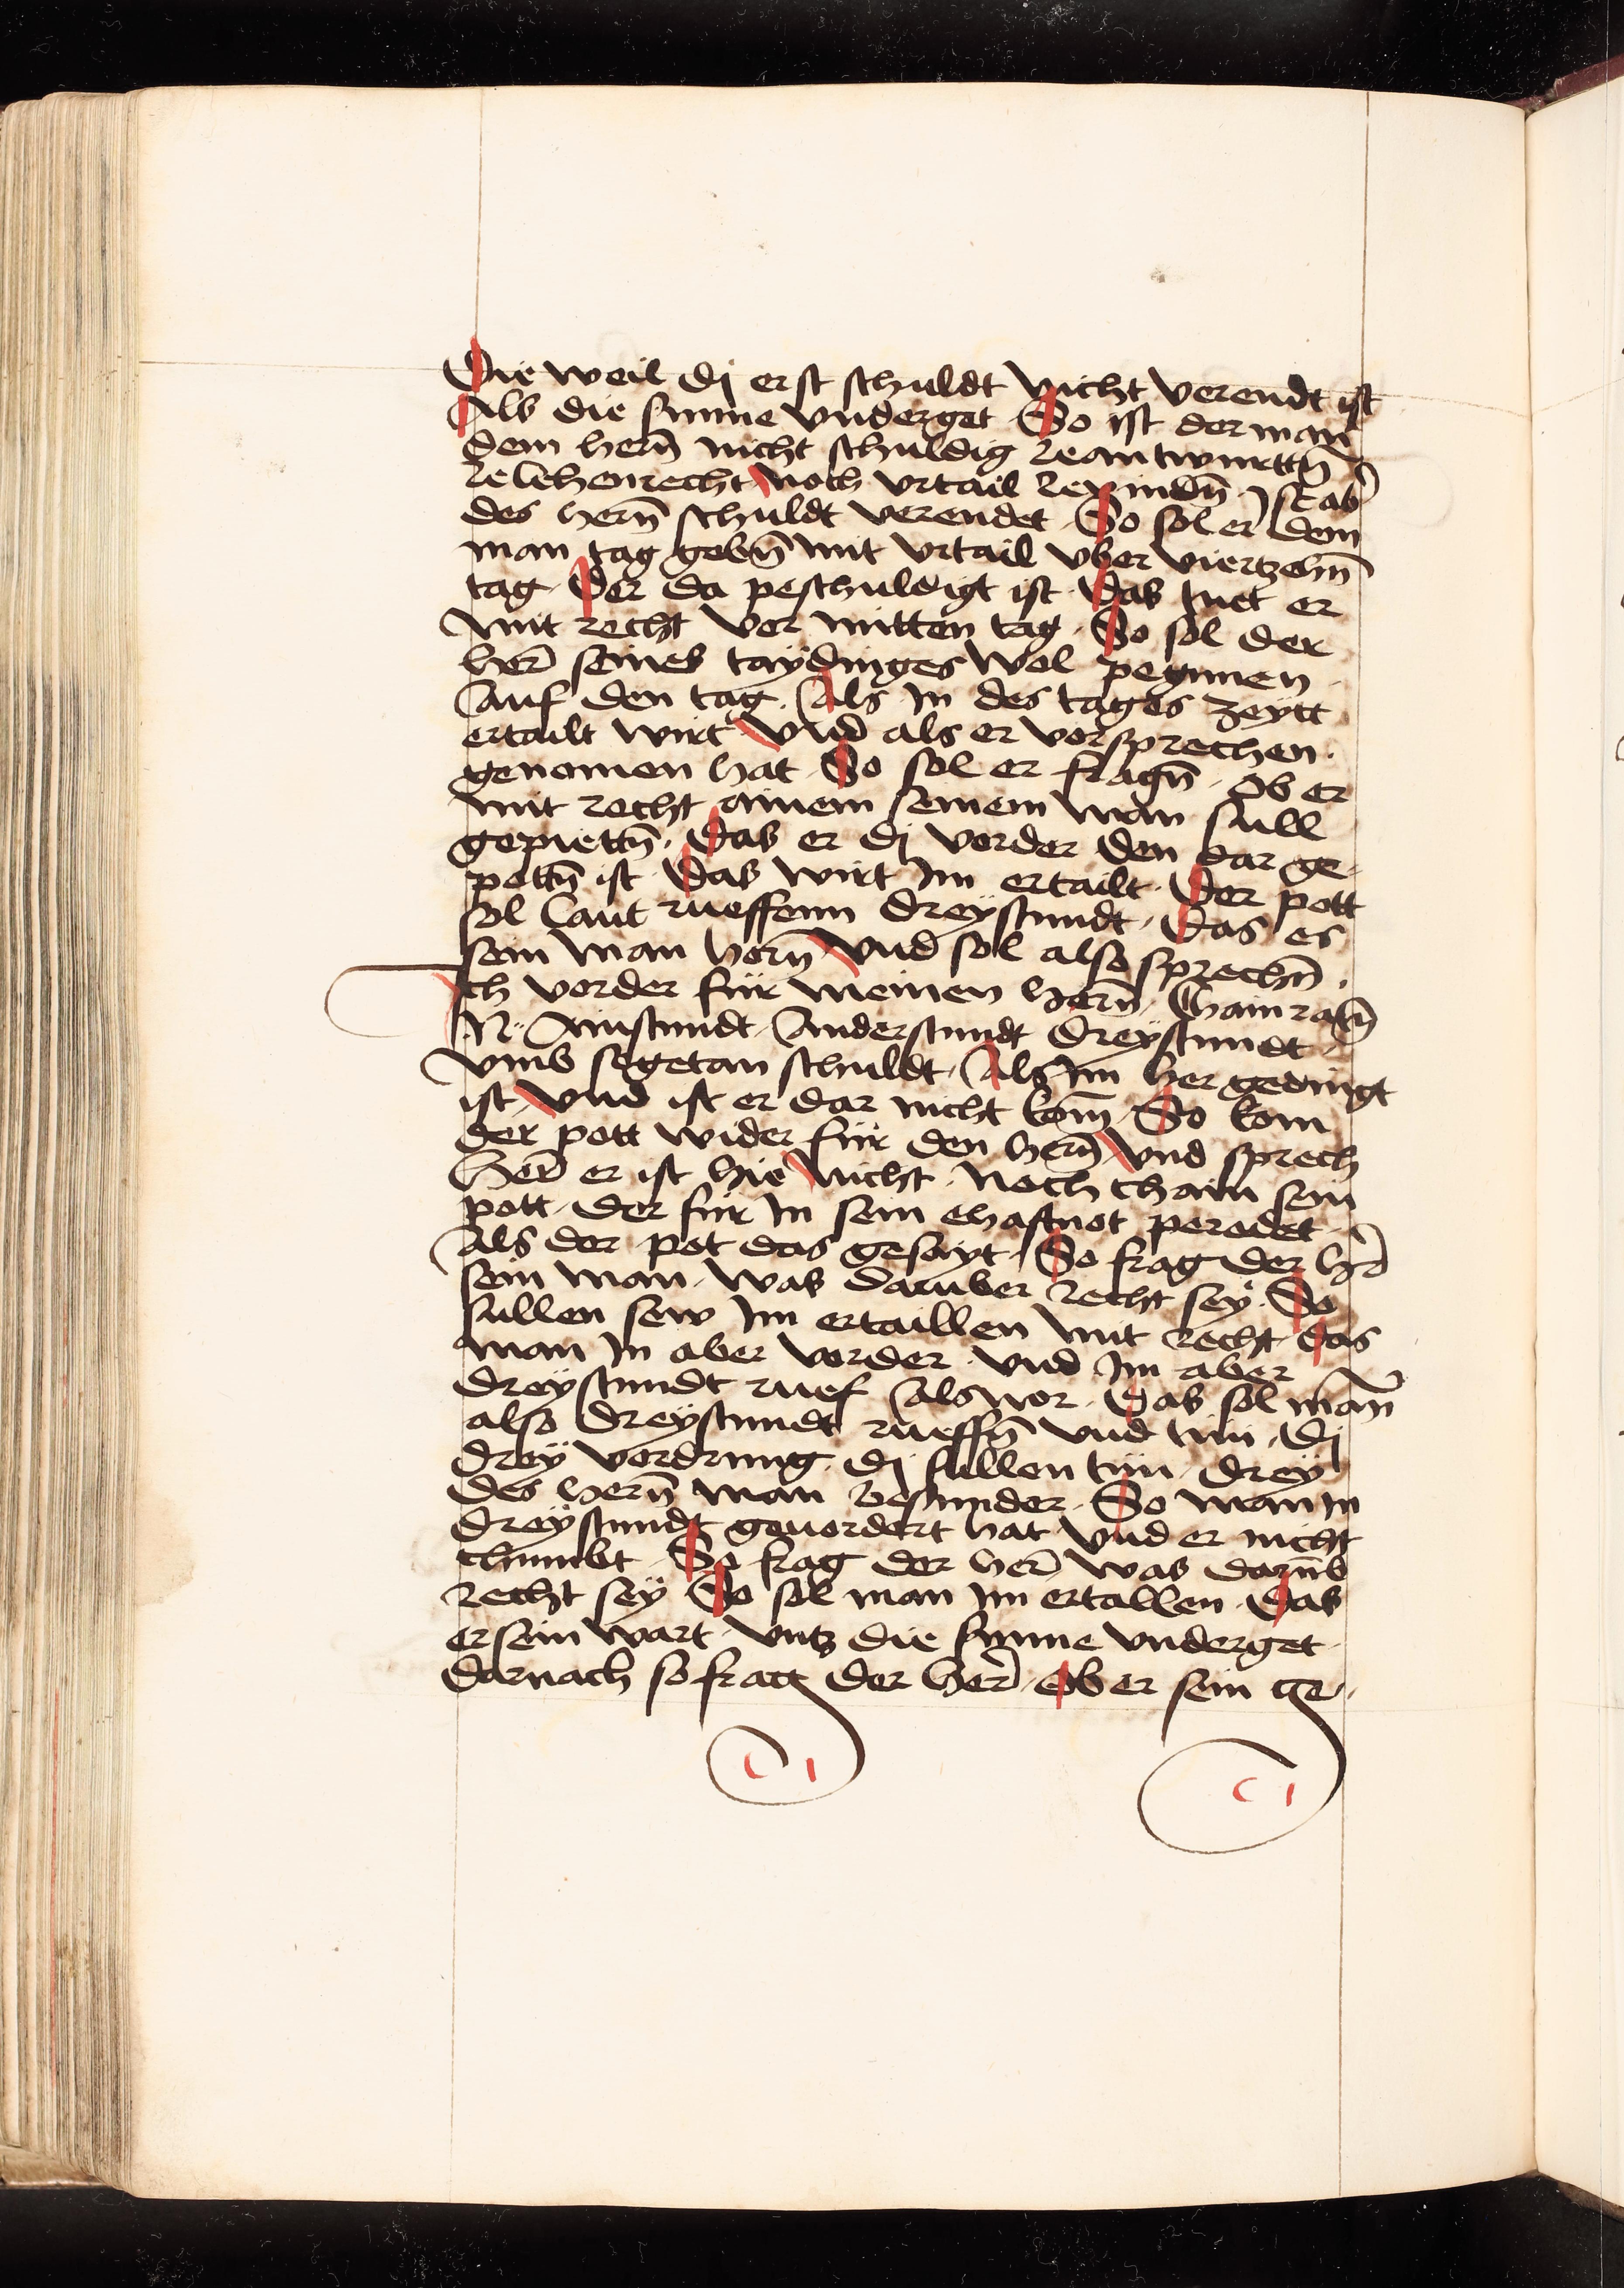 Die weil dj erst schuldt nicht verendt ist
Als die sunne vnderget · So ist der man
dem hern̄ nicht schuldig zeantwurttn̄
ze lehenrecht noch vrtail ze vindn̄ · Ist ab̄
des hern̄ schuldt verendet · So sol er dem
man tag gebn̄ mit vrtail vber viertzehn̄
tag · Der da peschuldigt ist · Das tuet er
mit recht vor mitten tag · So sol der
her̄ seines taÿdinges wol pegunen
Auf den tag · Als In des tages zeytt
ertailt wirt · Vnd als er vorsprechen ·
genomen hat · So sol er fragn̄ · Ob er
mit recht ainem seinem man sull
gepiettn̄ · Das er dj vorder den dar ge-
pottn̄ ist · Das wirt Im ertailt · Der pott
sol laut rueffenn dreÿstundt · Das es
sein man horn̄ · Vnd sol also sprechn̄ ·
Ich vorder für meinen hern̄ · Chainratn̄
N · Ainstundt · Anderstundt dreÿstundt ·
vmb sogetan schuldt · Als Im her gedingt
ist · Vnd ist er dar nicht kom̄ · So kom
der pott wider für den hern̄ · Vnd sprech
Her̄ er ist hie nicht · Noch chain sein
pott · der für In sein ehaftnot peredet ·
Als der pot das gesayt · So frag der hr̄
sein man · was daruber recht seÿ · So
sullen sew Im ertaillen mit recht · das
man In aber vorder · vnd Im aber
dreÿstundt ruef Als vor · Das sol man̄
also dreÿstundt rueffn̄ vnd tün · Dj
dreÿ vordrung · dj sullen tün · dreÿ
des hern̄ man besunder · So man In
dreÿstundt geuordert hat vnd er nicht
chumbt · So frag der her̄ was darūb
recht seÿ · So sol man Im ertallen · Das
er sein wart · vntz die sunne vnderget ·
darnach so frag der her̄ · Ob er sein ge-